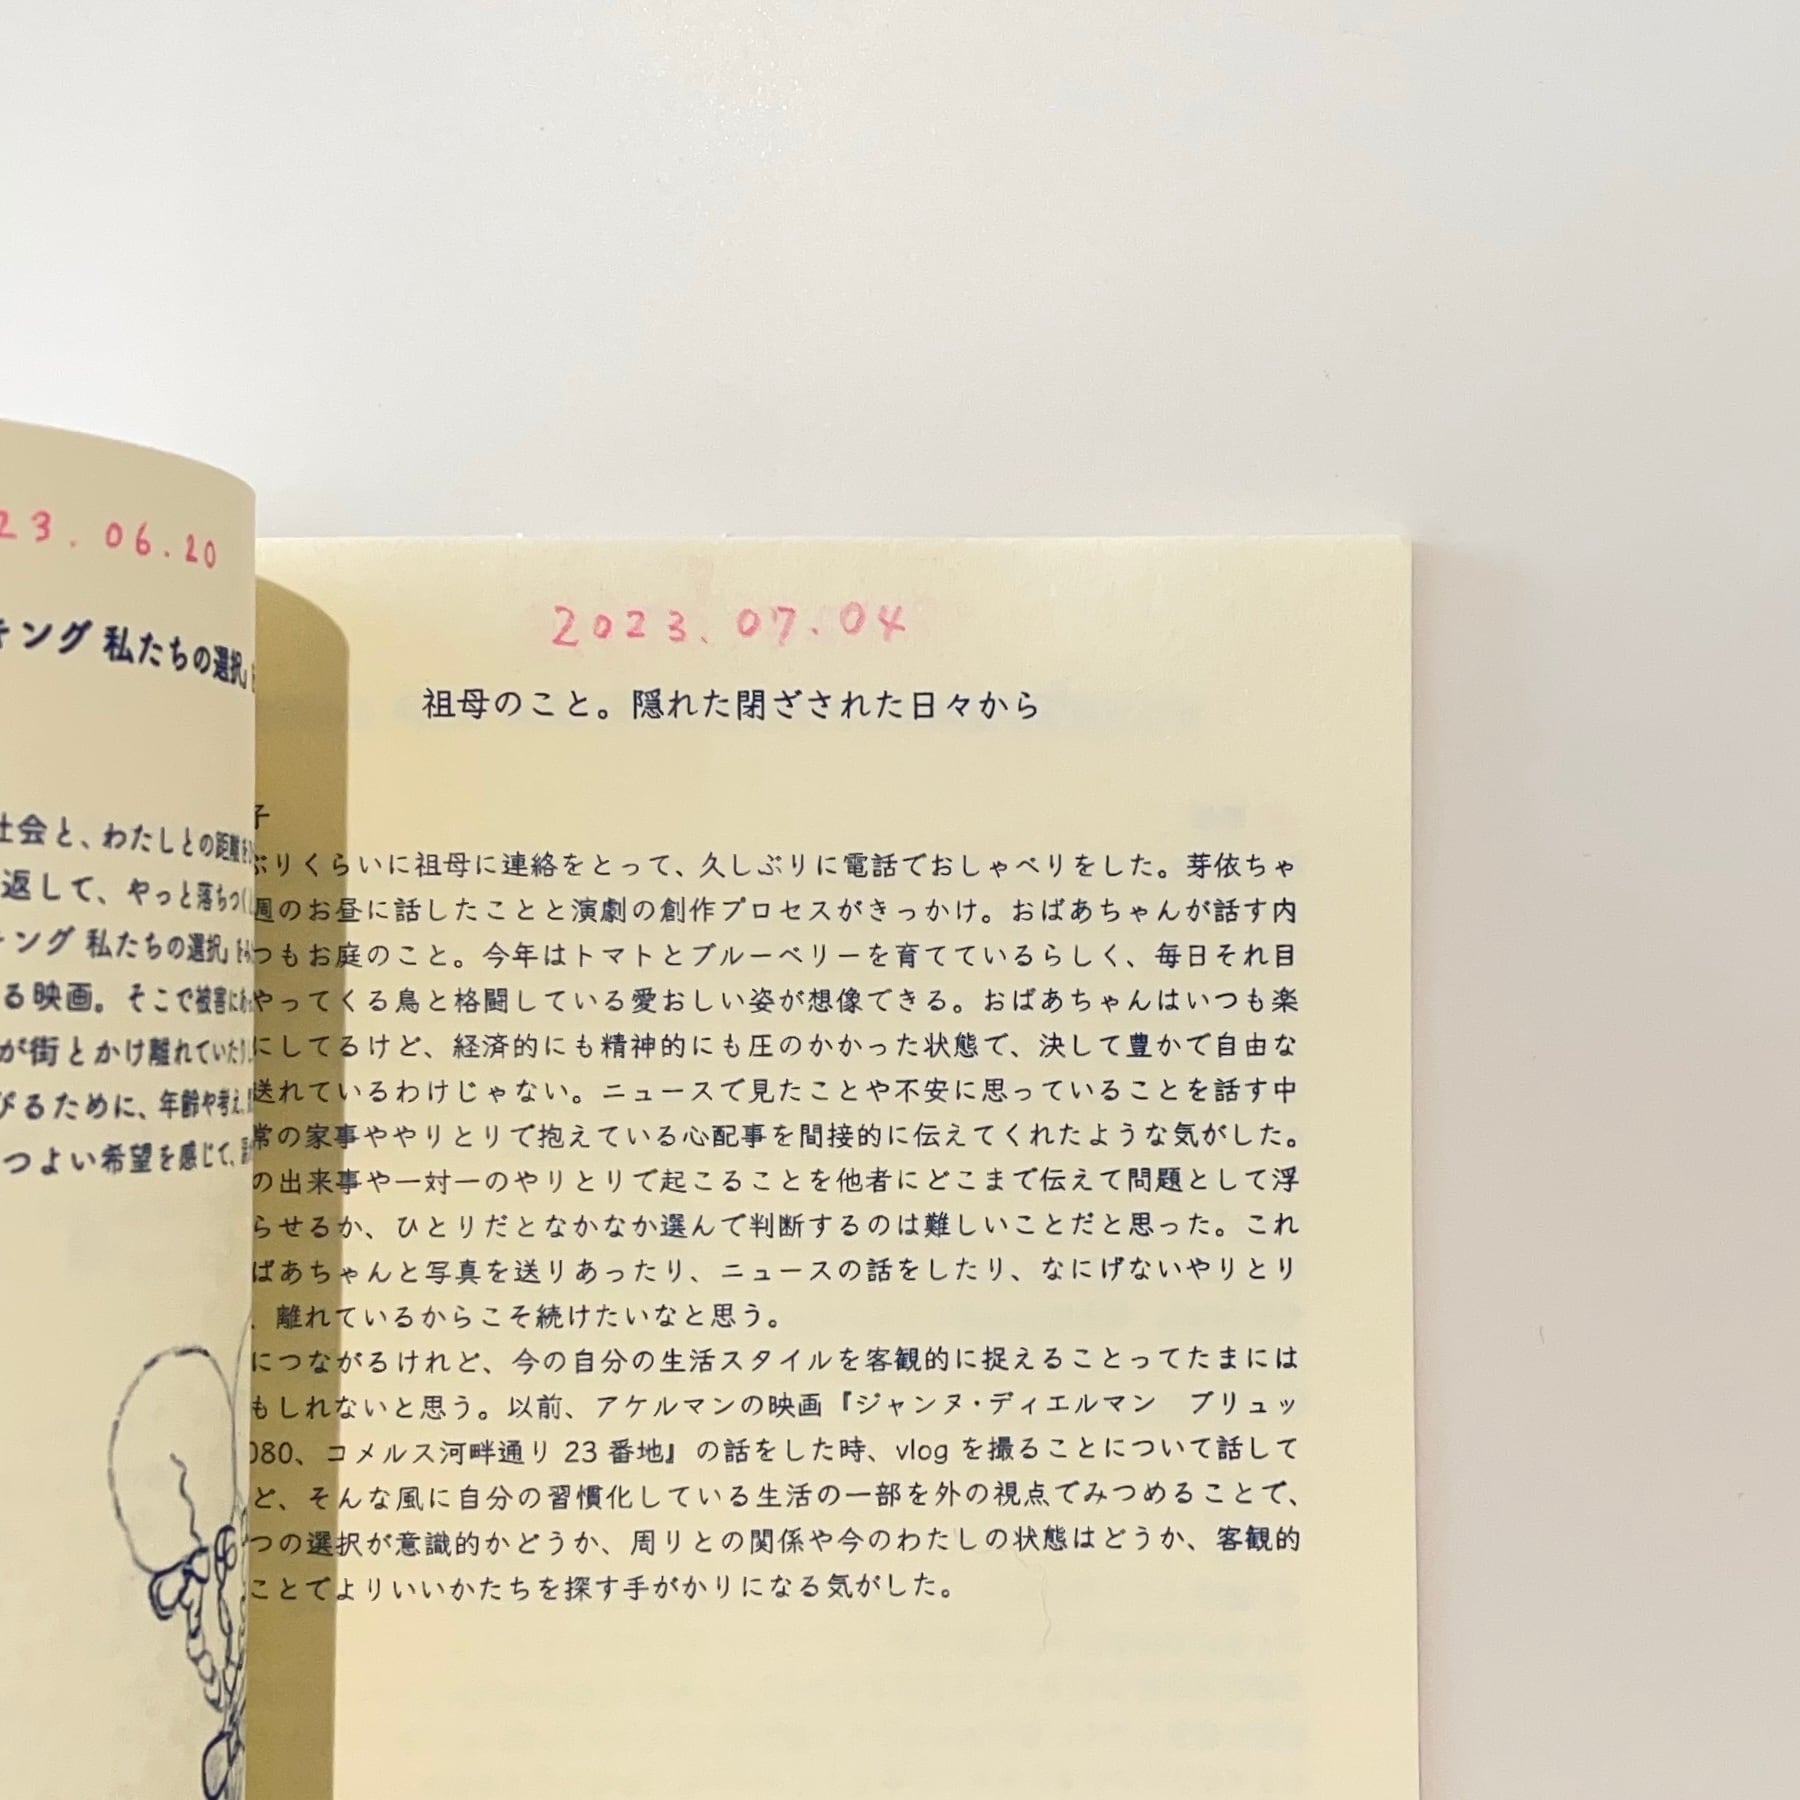 23.06.20
キング 私たちの選択』
社会と、わたしとの距離を
返して、やっと落ちつく
キング 私たちの選択』を
る映画。そこで被害にあっ
が街とかけ離れていたり
びるために、年齢や考え
つよい希望を感じて、
2023.07.04
祖母のこと。隠れた閉ざされた日々から
子
ぶりくらいに祖母に連絡をとって、久しぶりに電話でおしゃべりをした。芽依ちゃ
週のお昼に話したことと演劇の創作プロセスがきっかけ。おばあちゃんが話す内
つもお庭のこと。今年はトマトとブルーベリーを育てているらしく、毎日それ目
やってくる鳥と格闘している愛おしい姿が想像できる。おばあちゃんはいつも楽
にしてるけど、経済的にも精神的にも圧のかかった状態で、決して豊かで自由な
送れているわけじゃない。ニュースで見たことや不安に思っていることを話す中
常の家事ややりとりで抱えている心配事を間接的に伝えてくれたような気がした。
の出来事や一対一のやりとりで起こることを他者にどこまで伝えて問題として浮
らせるか、ひとりだとなかなか選んで判断するのは難しいことだと思った。これ
ばあちゃんと写真を送りあったり、ニュースの話をしたり、なにげないやりとり
、離れているからこそ続けたいなと思う。
につながるけれど、今の自分の生活スタイルを客観的に捉えることってたまには
もしれないと思う。以前、アケルマンの映画『ジャンヌ・ディエルマン　ブリュッ
080、コメルス河畔通り 23 番地』の話をした時、vlog を撮ることについて話して
ど、そんな風に自分の習慣化している生活の一部を外の視点でみつめることで、
つの選択が意識的かどうか、周りとの関係や今のわたしの状態はどうか、客観的
ことでよりいいかたちを探す手がかりになる気がした。